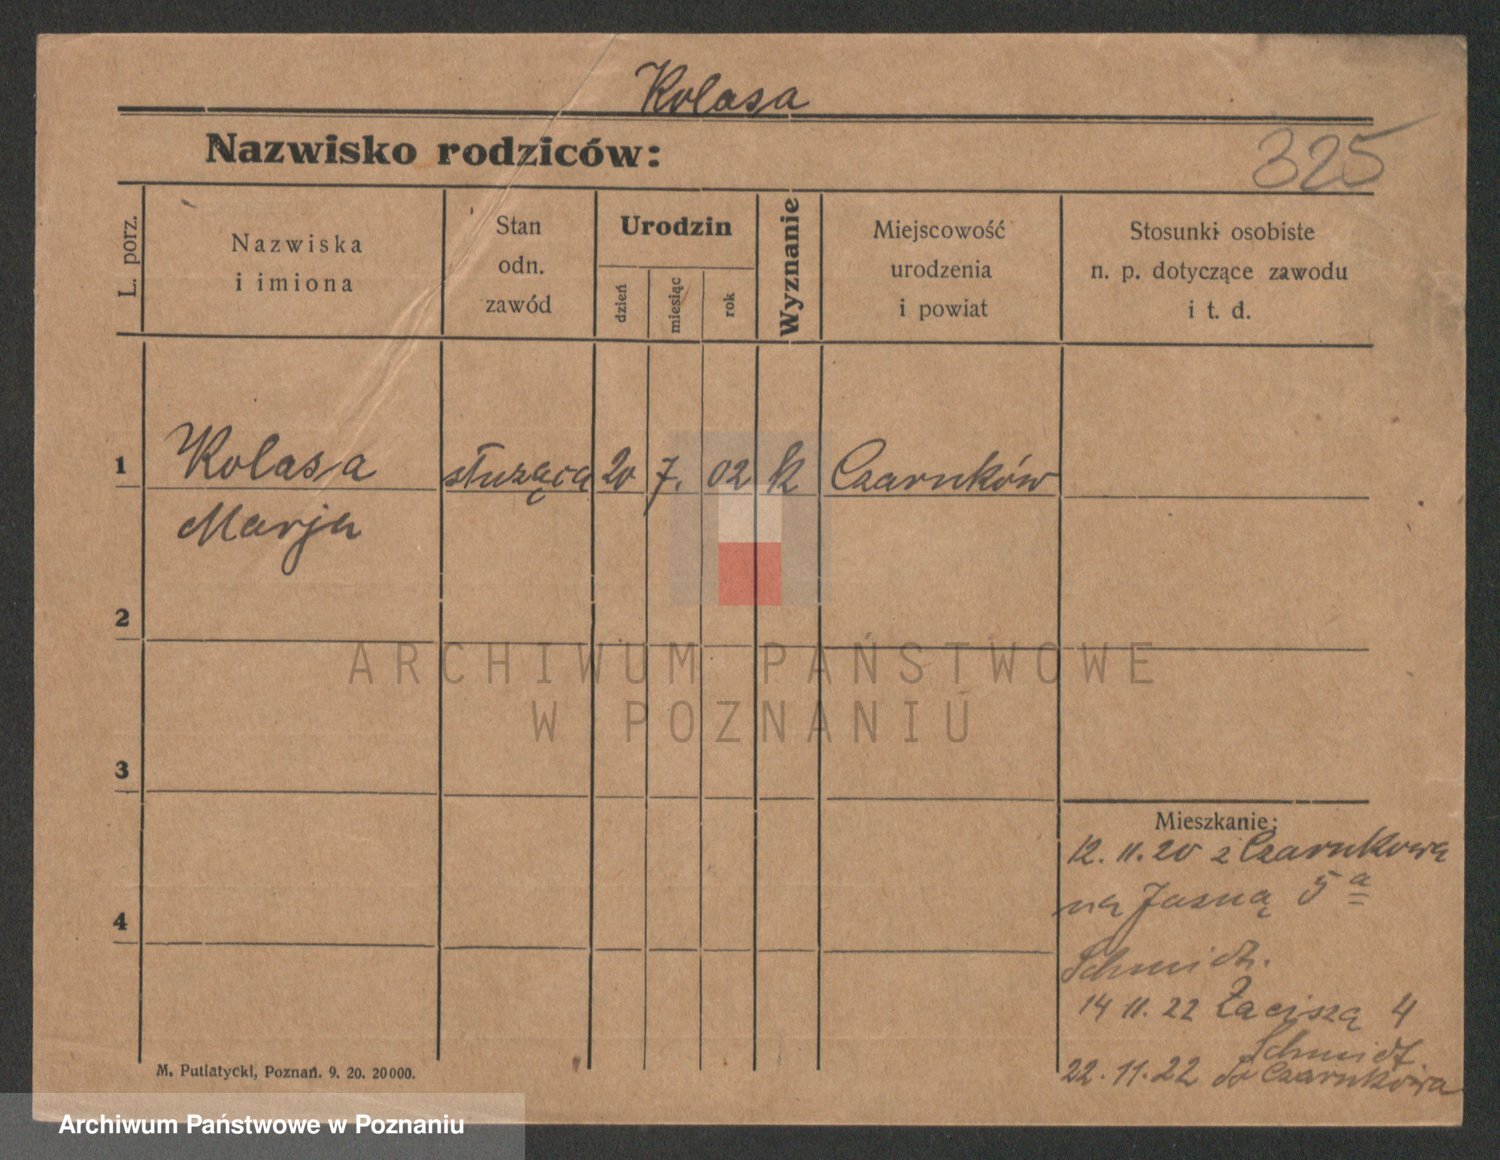 Kolasa
Nazwisko rodziców:
325
L. porz.
Nazwiska
i imiona
Stan
odn.
zawód
Urodzin
dzień
miesiąc
rok
Wyznanie
Miejscowość
urodzenia
i powiat
Stosunki osobiste
n. p. dotyczące zawodu
i t. d.
1
Kolasa
Marja
służąca
20
7.
02
k
Czarnków
2
3
4
Mieszkanie:
12. 11. 20 z Czarnkowa
na Jasną 5 a
Schmidt.
14 11. 22 Zaciszą 4
Schmidt
22. 11. 22 do Czarnkowa
M. Putiatycki, Poznań. 9. 20. 20000.
ARCHIWUM PAŃSTWOWE
W POZNANIU
Archiwum Państwowe w Poznaniu